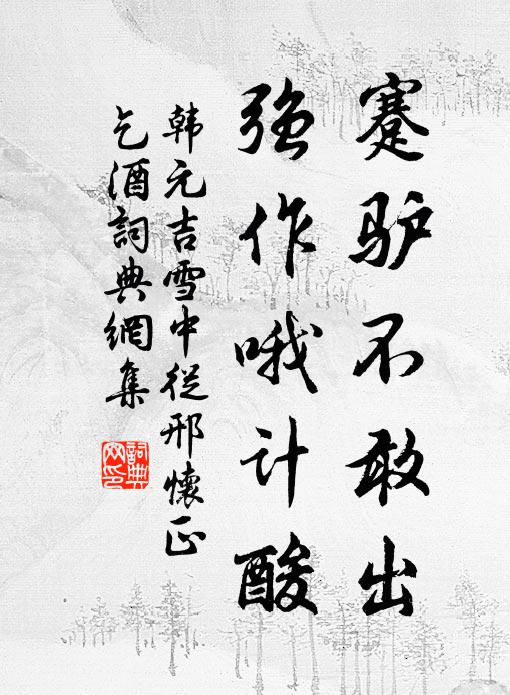 蹇驴不敢出
强作哦计酸
韩元吉雪中从邢怀正
乞酒词典網集
詞典
网印